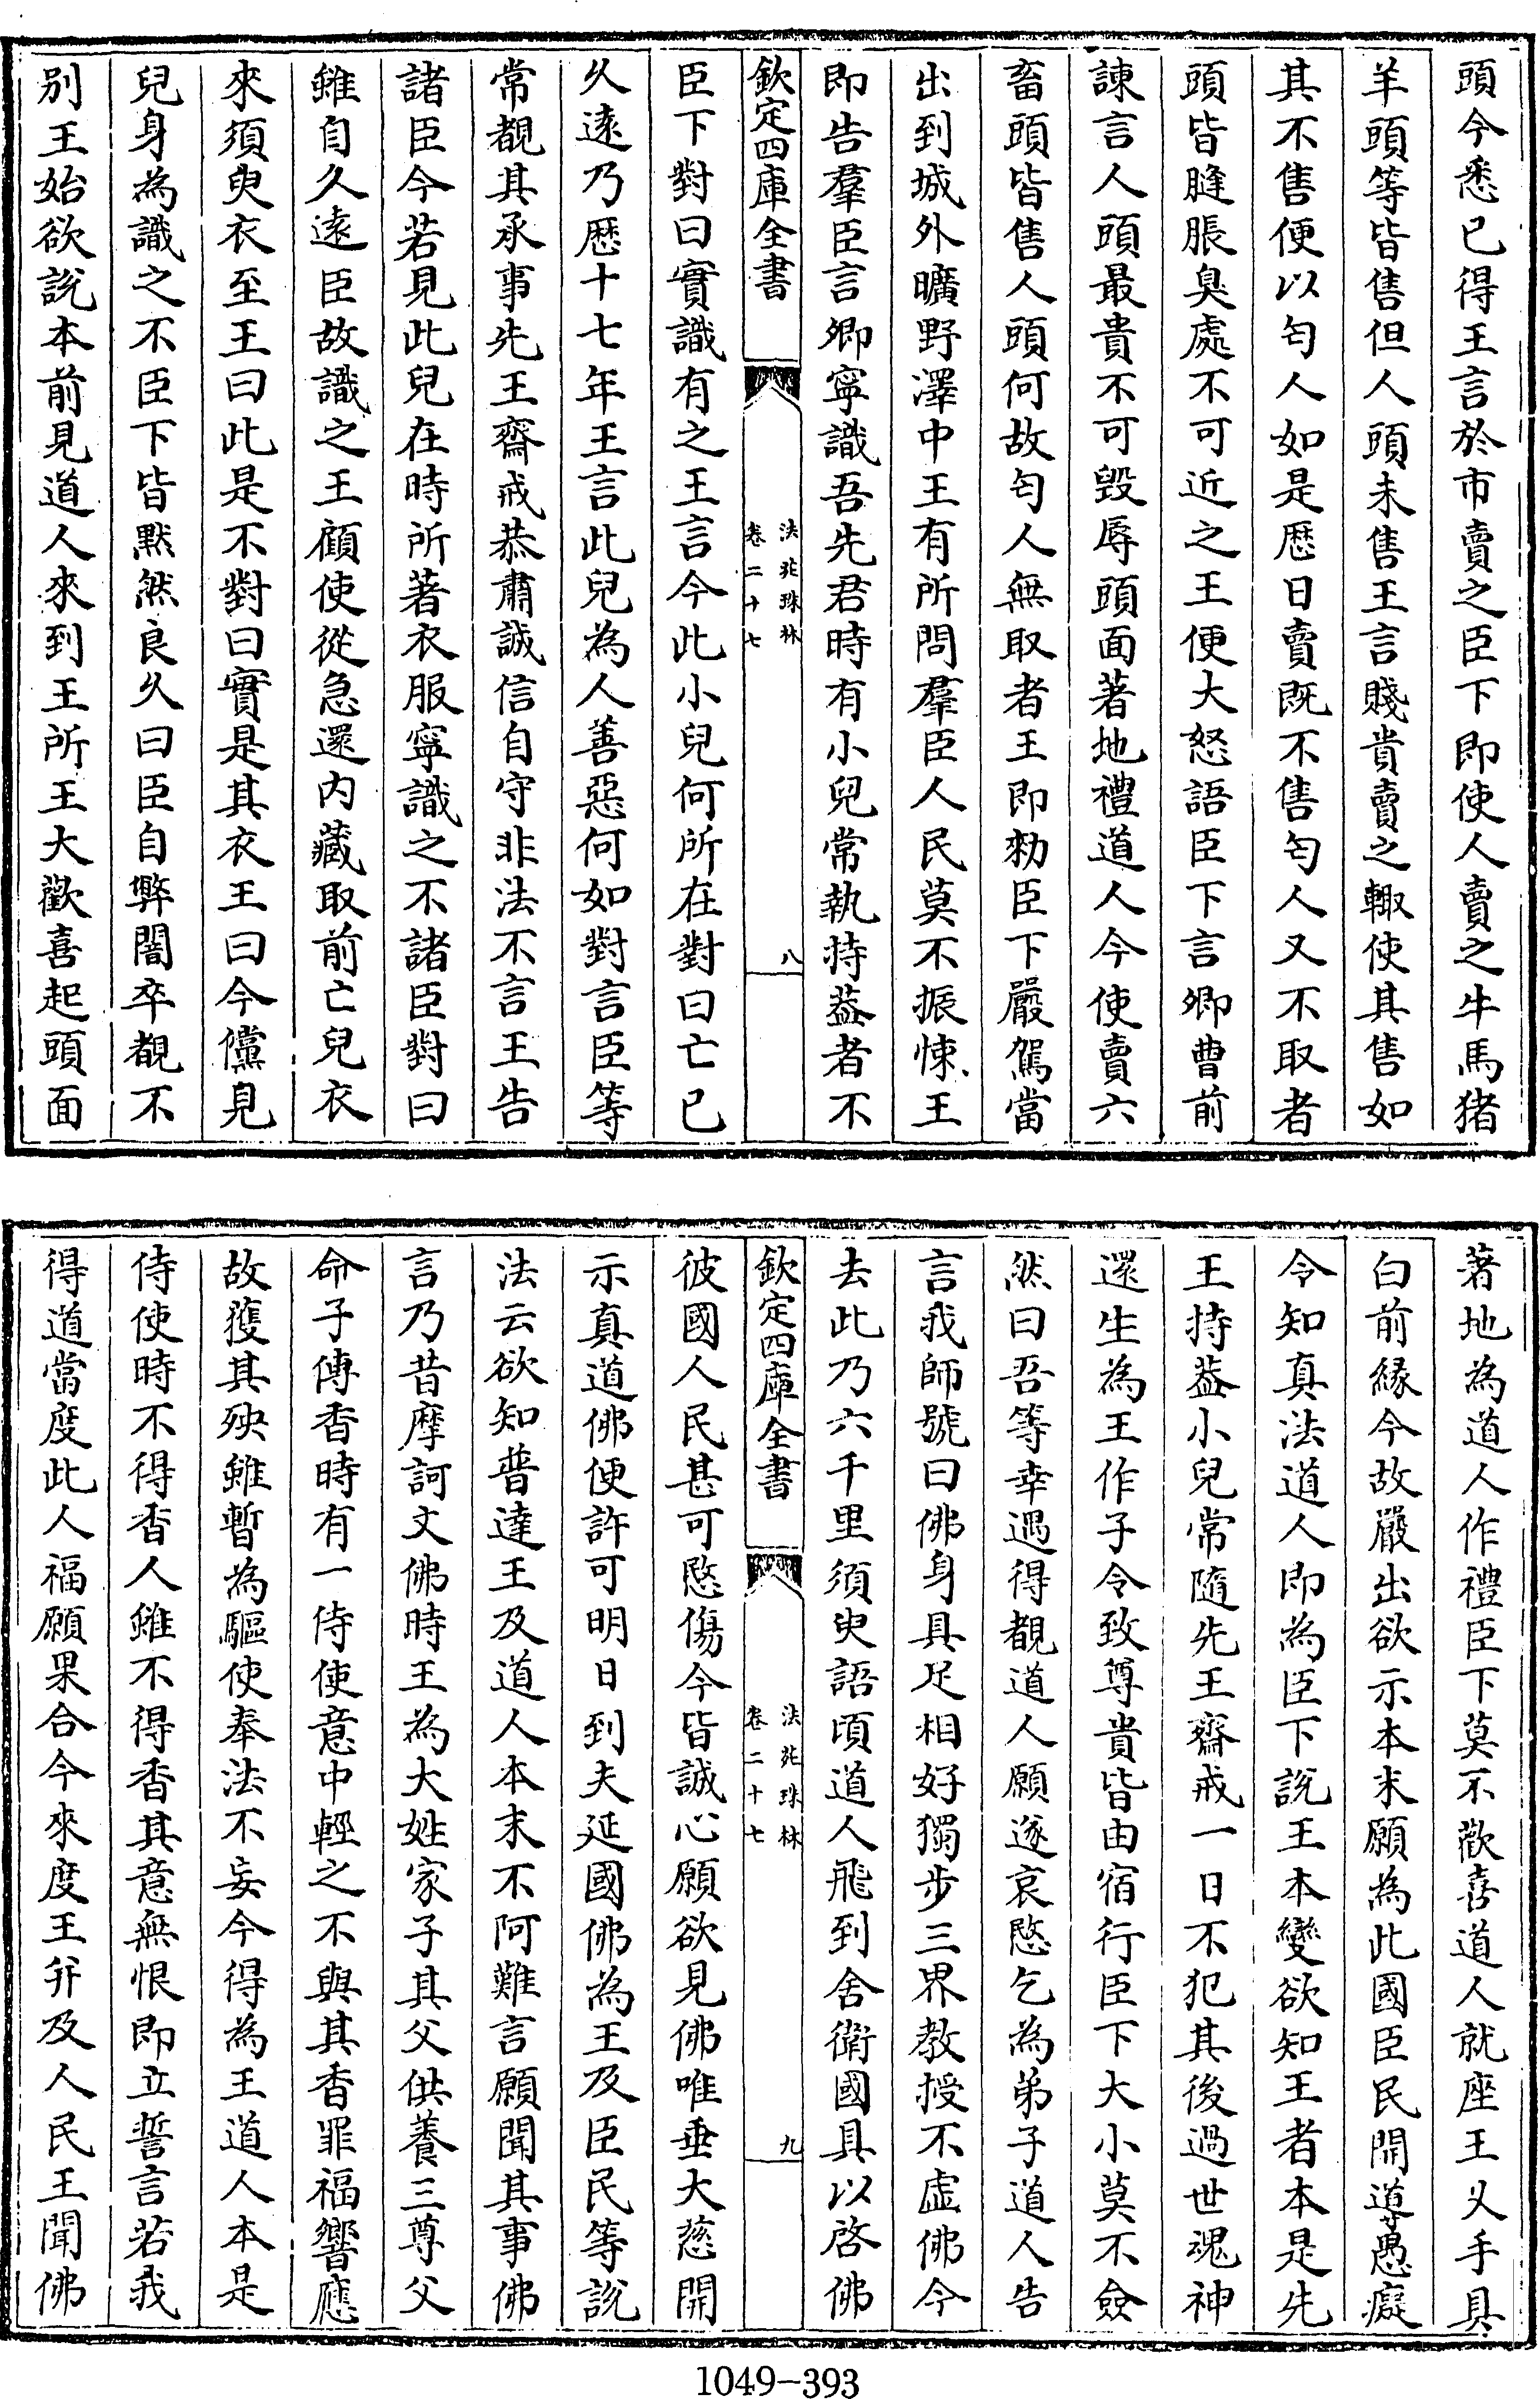 頭今悉已得王言於市賣之臣下即使人賣之牛馬猪
羊頭等皆售但人頭未售王言賤貴賣之輙使其售如
其不售便以匄人如是歴日賣既不售匄人又不取者
頭皆膖脹臭處不可近之王便大怒語臣下言卿曹前
諫言人頭最貴不可毁辱頭面著地禮道人今使賣六
畜頭皆售人頭何故匄人無取者王即勅臣下嚴駕當
出到城外曠野澤中王有所問羣臣人民莫不振悚王
即告羣臣言卿寧識吾先君時有小兒常執持葢者不
欽定四庫全書
法苑珠林
卷二十七
八
臣下對曰實識有之王言今此小兒何所在對曰亡已
乆逺乃歴十七年王言此兒為人善惡何如對言臣等
常覩其承事先王齋戒恭肅誠信自守非法不言王告
諸臣今若見此兒在時所著衣服寧識之不諸臣對曰
雖自久逺臣故識之王顧使從急還内藏取前亡兒衣
來須臾衣至王曰此是不對曰實是其衣王曰今儻見
兒身為識之不臣下皆黙然良乆曰臣自弊闇卒覩不
别王始欲説本前見道人來到王所王大歡喜起頭面
著地為道人作禮臣下莫不歡喜道人就座王乂手具
白前縁今故嚴出欲示本末願為此國臣民開導愚癡
令知真法道人即為臣下説王本變欲知王者本是先
王持葢小兒常隨先王齋戒一日不犯其後過世魂神
還生為王作子令致尊貴皆由宿行臣下大小莫不僉
然曰吾等幸遇得覩道人願遂哀愍乞為弟子道人告
言我師號曰佛身具足相好獨步三界教授不虚佛今
去此乃六千里須臾語頃道人飛到舍衛國具以啓佛
欽定四庫全書
法苑珠林
卷二十七
九
彼國人民甚可愍傷今皆誠心願欲見佛唯垂大慈開
示真道佛便許可明日到夫延國佛為王及臣民等説
法云欲知普達王及道人本末不阿難言願聞其事佛
言乃昔摩訶文佛時王為大姓家子其父供養三尊父
命子傳香時有一侍使意中輕之不與其香罪福響應
故獲其殃雖暫為驅使奉法不妄今得為王道人本是
侍使時不得香人雖不得香其意無恨即立誓言若我
得道當度此人福願果合今來度王并及人民王聞佛
1049-393